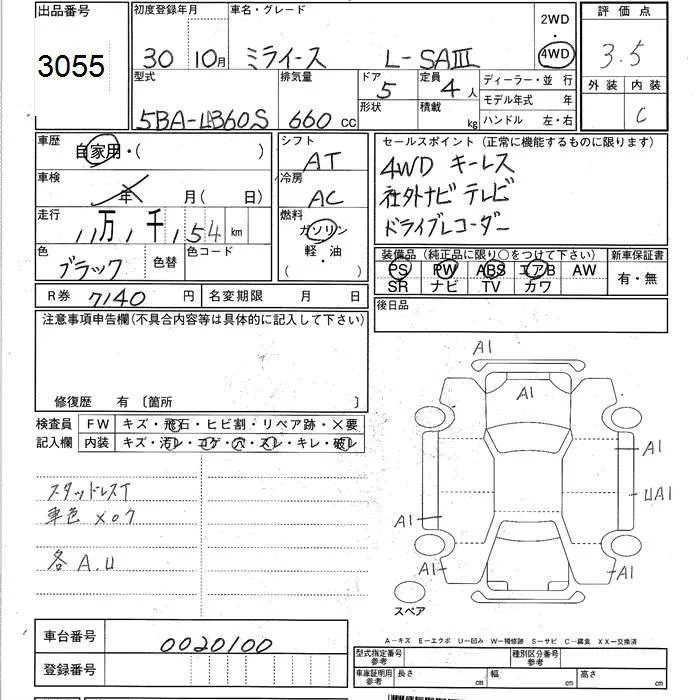 出品番号
3055
初度登録年月
30 10月
車名・グレード
ミライース L-SAⅢ
2WD
・
4WD
評価点
3.5
外装 内装
C
型式
5BA-LA360S
排気量
660 CC
ドア
5
形状
定員
4人
積載
kg
ディーラー・並 行
モデル年式 年
ハンドル 左・右
車歴
自家用・( )
車検
年 月( 日)
走行
11万 1千 154 km
色
ブラック
色替
色コード
シフト
AT
冷房
AC
燃料
ガソリン
軽・油
( )
セールスポイント (正常に機能するものに限ります)
4WD キーレス
社外ナビ テレビ
ドライブレコーダー
装備品 (純正品に限り○をつけて下さい)
PS PW ABS エアB AW
SR ナビ TV カワ
新車保証書
有・無
R券 7140 円
名変期限 月 日
後日品
注意事項申告欄(不具合内容等は具体的に記入して下さい)
修復歴 有 〔箇所 〕
検査員
記入欄
FW キズ・飛石・ヒビ割・リペア跡・×要
内装 キズ・汚レ・コゲ・穴・スレ・キレ・破レ
スタッドレスT
車色 X07
各 A.U
A1
A1
A1
UA1
A1
A1
A1
スペア
A-キズ E-エクボ U-凹み W-補修跡 S-サビ C-腐食 XX-交換済
車台番号
0020100
登録番号
型式指定番号
参考
種別区分番号
参考
車庫証明用
参考
長さ cm
幅 cm
高さ cm